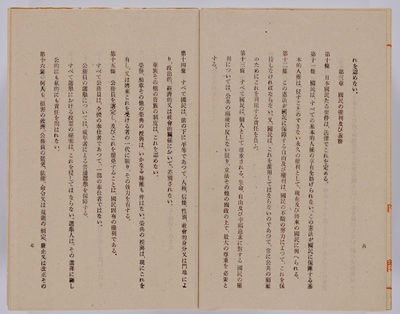 れを認めない。
第三章 國民の權利及び義務
第十條 日本國民たる要件は、法律でこれを定める。
第十一條 國民は、すべての基本的人權の享有を妨げられない。この憲法が國民に保障する基
本的人權は、侵すことのできない永久の權利として、現在及び將來の國民に與へられる。
第十二條 この憲法が國民に保障する自由及び權利は、國民の不斷の努力によつて、これを保
持しなければならない。又、國民は、これを濫用してはならないのであつて、常に公共の福祉
のためにこれを利用する責任を負ふ。
第十三條 すべて國民は、個人として尊重される。生命、自由及び幸福追求に對する國民の權
利については、公共の福祉に反しない限り、立法その他の國政の上で、最大の尊重を必要と
する。
第十四條 すべて國民は、法の下に平等であつて、人種、信條、性別、社會的身分又は門地によ
り、政治的、經濟的又は社會的關係において、差別されない。
華族その他の貴族の制度は、これを認めない。
榮譽、勳章その他の榮典の授與は、いかなる特權も伴はない。榮典の授與は、現にこれを
有し、又は將來これを受ける者の一代に限り、その效力を有する。
第十五條 公務員を選定し、及びこれを罷免することは、國民固有の權利である。
すべて公務員は、全體の奉仕者であつて、一部の奉仕者ではない。
公務員の選擧については、成年者による普通選擧を保障する。
すべて選擧における投票の祕密は、これを侵してはならない。選擧人は、その選擇に關し
公的にも私的にも責任を問はれない。
第十六條 何人も、損害の救濟、公務員の罷免、法律、命令又は規則の制定、廢止又は改正その